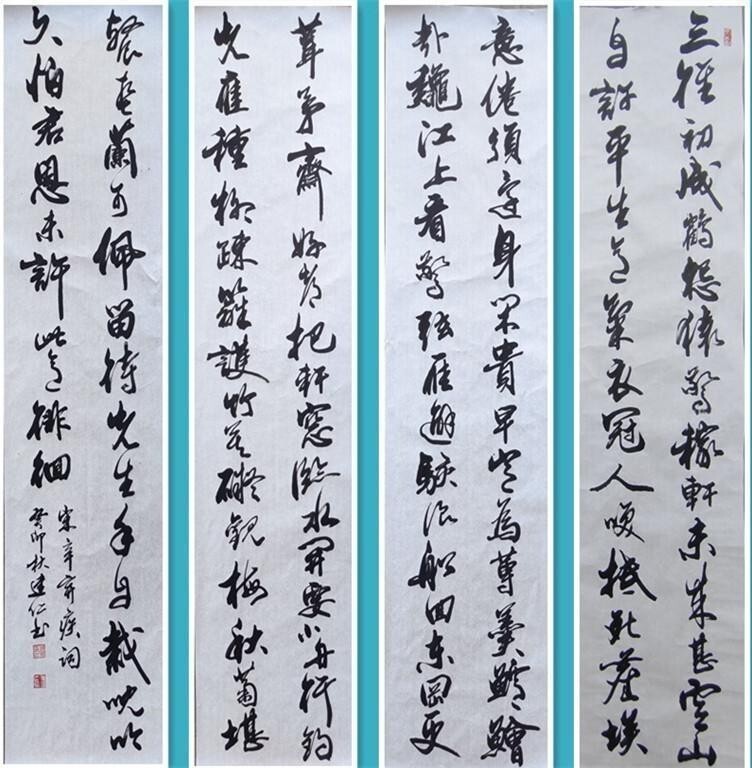 三徑初成鶴怨猿驚稼軒未来甚雲山
自許平生意氣衣冠人笑抵死塵埃
意倦須還身閑貴早豈為蓴羹鱸鱠
哉龝江上看驚弦雁避駭浪船回东岡更
葺茅齋好都把軒窓臨水開要小舟行釣
先應種柳疎籬護竹莫礙觀梅秋菊堪
餐春蘭可佩留待先生手自栽沉吟
久怕君恩未許此意徘徊
宋辛弃疾词
癸卯秋建仁书